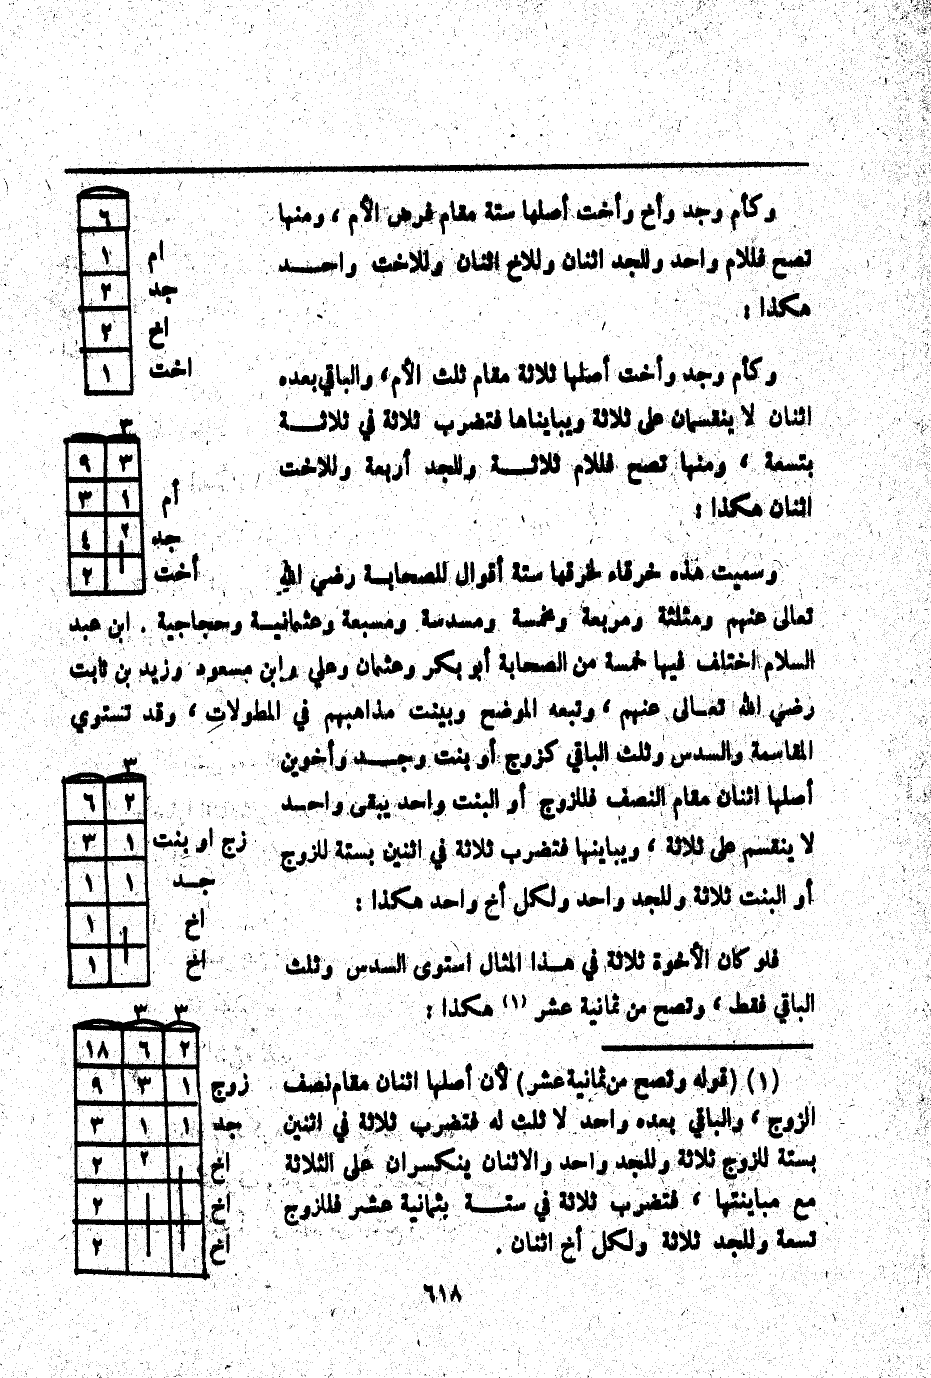 وكأم وجد وأخ وأخت أصلها ستة مقام فرض الأم ، ومنها
تصح فللام واحد وللجد اثنان وللاخ اثنان وللاخت واحـــد
هكذا :
٦
١ ام
٢ جد
٢ اخ
١ اخت
وكأم وجد وأخت أصلها ثلاثة مقام ثلث الأم، والباقي بعده
اثنان لا ينقسمان على ثلاثة ويباينها فتضرب ثلاثة في ثلاثـــة
بتسعة ، ومنها تصح فللام ثلاثـــة وللجد أربعة وللاخت
اثنان هكذا :
٣
٩ ٣
٣ ١ أم
٤ ٢ جد
٢ أخت
وسميت هذه خرقاء لخرقها ستة أقوال للصحابـة رضي الله
تعالى عنهم ومثلثة ومربعة ومخمسة ومسدسة ومسبعة وعثمانيـة وحجاجية . ابن عبد
السلام اختلف فيها خمسة من الصحابة أبو بكر وعثمان وعلي وابن مسعود وزيد بن ثابت
رضي الله تعـالى عنهم ، وتبعه الموضح وبينت مذاهبهم في المطولات ، وقد تستوي
المقاسمة والسدس وثلث الباقي كزوج أو بنت وجـــد وأخوين
أصلها اثنان مقام النصف فللزوج أو البنت واحد يبقى واحـد
لا ينقسم على ثلاثة ، ويباينها فتضرب ثلاثة في اثنين بستة للزوج
أو البنت ثلاثة وللجد واحد ولكل أخ واحد هكذا :
٣
٦ ٢
٣ ١ زج او بنت
١ ١ جـد
١ اخ
١ اخ
فلو كان الأخوة ثلاثة في هـذا المثال استوى السدس وثلث
الباقي فقط ، وتصح من ثمانية عشر (١) هكذا :
٣ ٣
١٨ ٦ ٢
٩ ٣ ١ زوج
٣ ١ ١ جد
٢ ٢ اخ
٢ اخ
٢ اخ
(١) (قوله وتصح من ثمانية عشر) لأن أصلها اثنان مقام نصف
الزوج ، والباقي بعده واحد لا ثلث له فتضرب ثلاثة في اثنين
بستة للزوج ثلاثة وللجد واحد والاثنان ينكسران على الثلاثة
مع مباينتها ، فتضرب ثلاثة في ستـــة بثمانية عشر فللزوج
تسعة وللجد ثلاثة ولكل أخ اثنان .
٦١٨